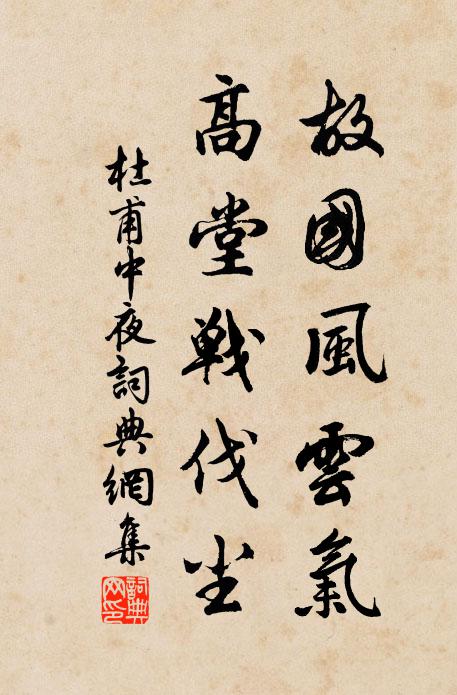 故國風雲氣
高堂戰伐尘
杜甫中夜詞典網集
詞典网印